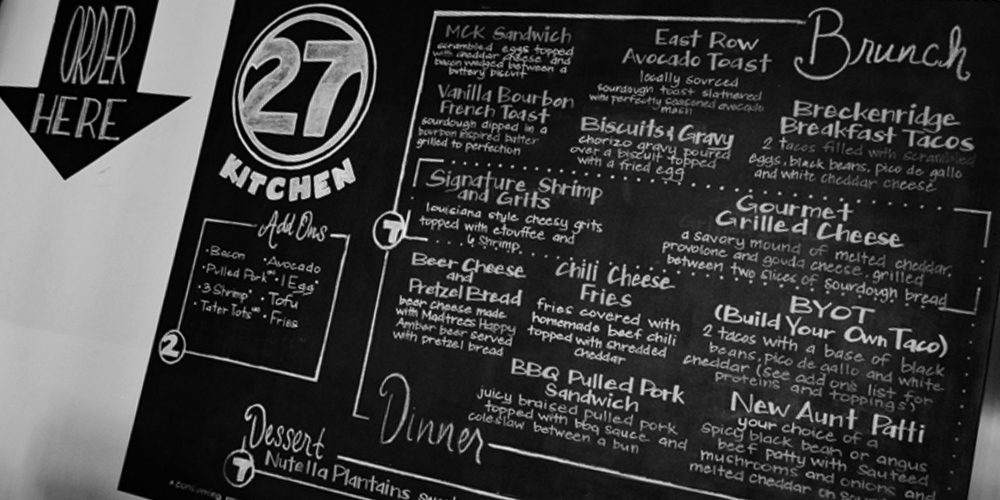 ORDER
HERE
27
KITCHEN
Add Ons
•Bacon •Avocado
•Pulled Pork •1 Egg
•3 Shrimp •Tofu
•Tater Tots •Fries
2
Brunch
MCK Sandwich
scrambled eggs topped
with cheddar cheese and
bacon wedged between a
buttery biscuit
Vanilla Bourbon
French Toast
sourdough dipped in a
bourbon inspired batter
grilled to perfection
East Row
Avocado Toast
locally sourced
sourdough toast slathered
with perfectly seasoned avocado
mash
Biscuits & Gravy
chorizo gravy poured
over a biscuit topped
with a fried egg
Breckenridge
Breakfast Tacos
2 tacos filled with scrambled
eggs, black beans, pico de gallo
and white cheddar cheese
7
Signature Shrimp
and Grits
louisiana style cheesy grits
topped with etouffee and
4 Shrimp
Gourmet
Grilled Cheese
a savory mound of melted cheddar,
provolone and gouda cheese grilled
between two slices of sourdough bread
Beer Cheese
and
Pretzel Bread
beer cheese made
with Madtrees Happy
Amber beer served
with pretzel bread
Chili Cheese
Fries
fries covered with
homemade beef chili
topped with shredded
cheddar
BYOT
(Build Your Own Taco)
2 tacos with a base of black
beans, pico de gallo and white
cheddar (see add ons list for
proteins and toppings)
BBQ Pulled Pork
Sandwich
juicy braised pulled pork
topped with bbq sauce and
coleslaw between a bun
New Aunt Patti
your choice of a
spicy black bean or angus
beef patty with sauteed
mushrooms and onions
melted cheddar on
Dinner
Dessert
7
Nutella Plantains
*consuming